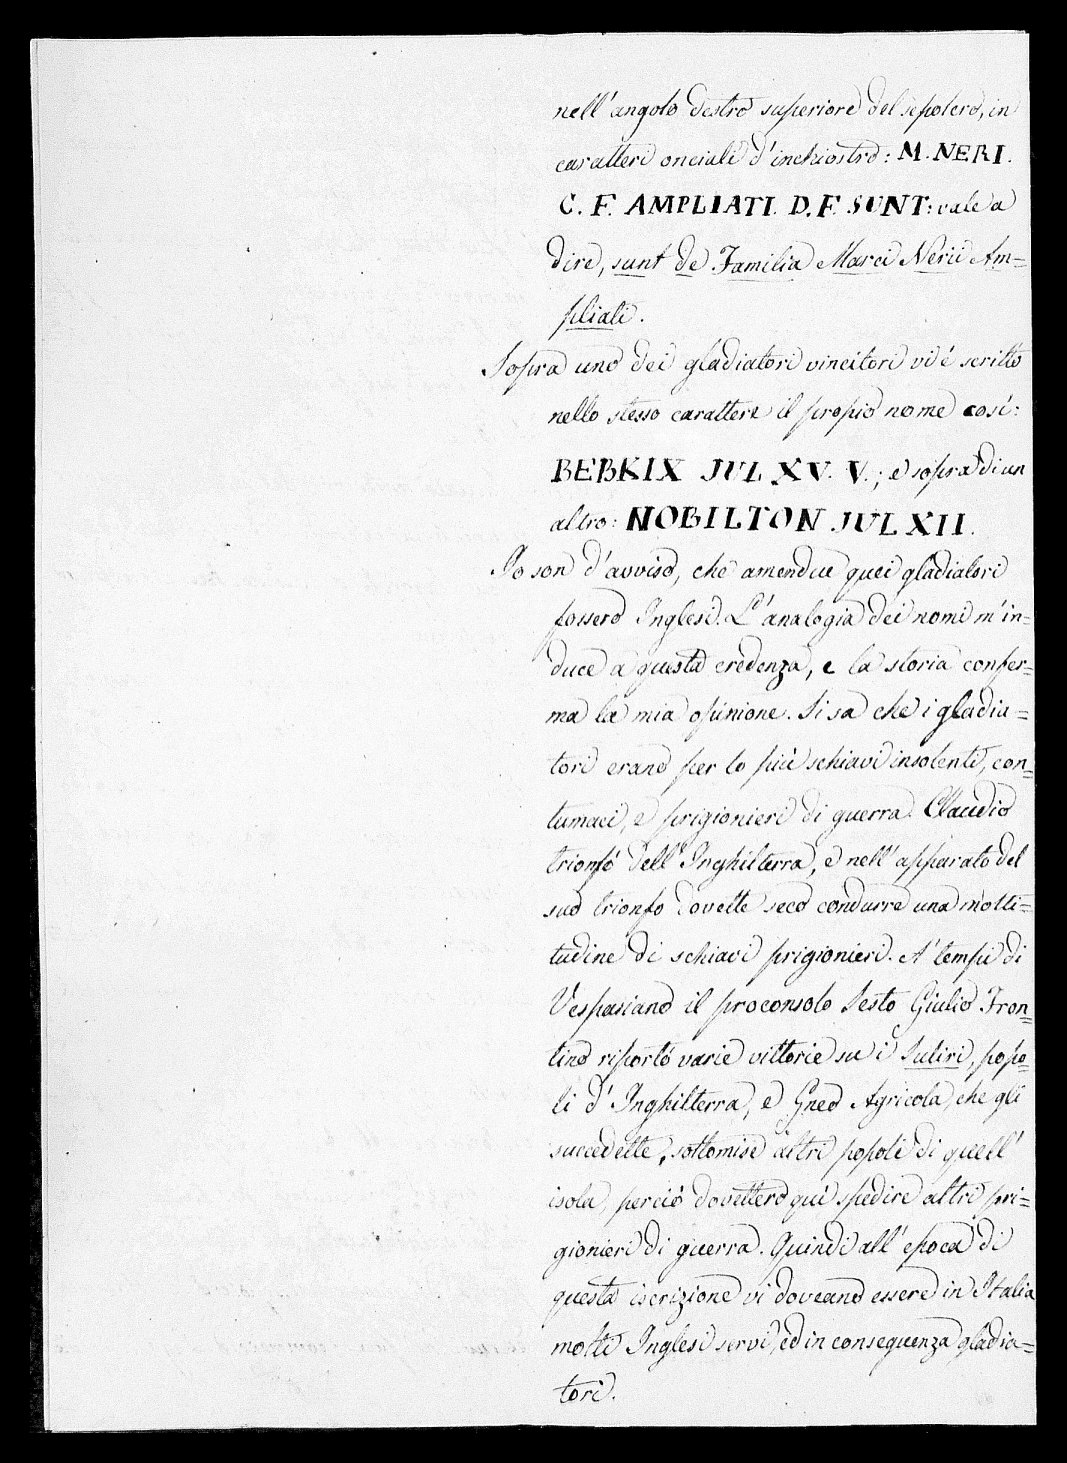 nell'angolo destro superiore del sepolcro, in
caratteri onciali d'inchiostro: M. NERI.
C. F. AMPLIATI. D. F. SUNT: vale a
dire, sunt de Familia Marci Nerii Am=
pliati.
Sopra uno dei gladiatori vincitori vi è scritto
nello stesso carattere il propio nome così:
BEBKIX JUL XV. V.; e sopra di un
altro: NOBILTON JUL XII.
Io son d'avviso, che amendue quei gladiatori
fossero Inglesi. L'analogia dei nomi m'in=
duce a questa credenza, e la storia confer=
ma la mia opinione. Si sa che i gladia=
tori erano per lo più schiavi insolenti, con=
tumaci, e prigionieri di guerra. Claudio
trionfò dell'Inghilterra, e nell'apparato del
suo trionfo dovette seco condurre una molti=
tudine di schiavi prigionieri. A' tempi di
Vespasiano il proconsolo Sesto Giulio Fron=
tino riportò varie vittorie su i Sutiri, popo=
li d'Inghilterra, e Gneo Agricola, che gli
succedette, sottomise altri popoli di quell'
isola, perciò dovettero quì spedire altri pri=
gionieri di guerra. Quindi all'epoca di
questa iscrizione vi doveano essere in Italia
molti Inglesi servi, ed in conseguenza gladia=
tori.